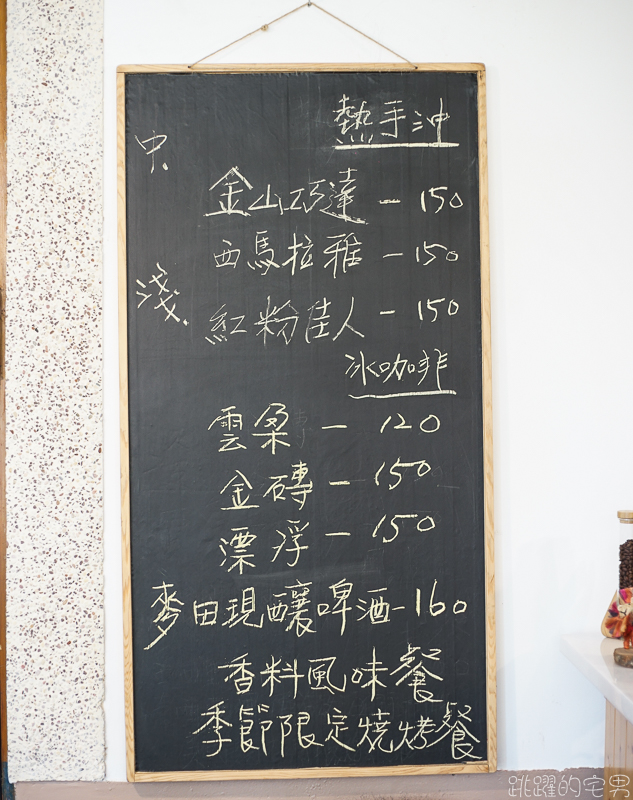 熱手沖
中
金山巧達 - 150
西馬拉雅 - 150
淺
紅粉佳人 - 150
冰咖啡
雲朵 - 120
金磚 - 150
漂浮 - 150
麥田現釀啤酒 - 160
香料風味餐
季節限定燒烤餐
跳躍的宅男